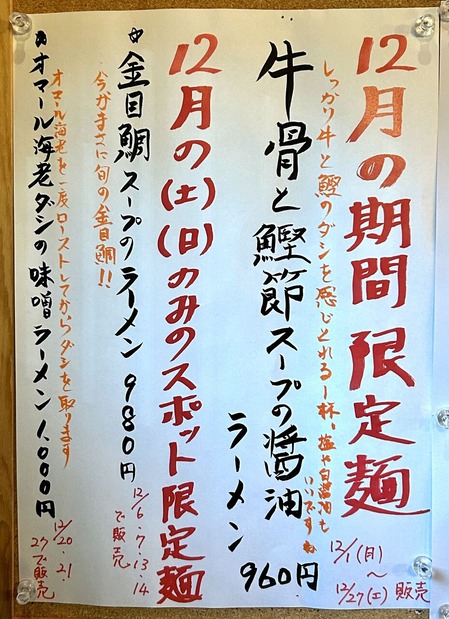 12月の期間限定麺
12/1(月)
〜
12/27(土)販売
しっかり牛と鰹のダシを感じとれる1杯。塩や白醤油も
いいですね
牛骨と鰹節スープの醤油
ラーメン
960円
12月の(土)(日)のみのスポット限定麺
金目鯛スープのラーメン 980円
12/6・7・13・14
で販売
今がまさに旬の金目鯛!!
オマール海老ダシの味噌ラーメン 1,000円
オマール海老を一度ローストしてからダシを取ります
12/20・21・
27で販売